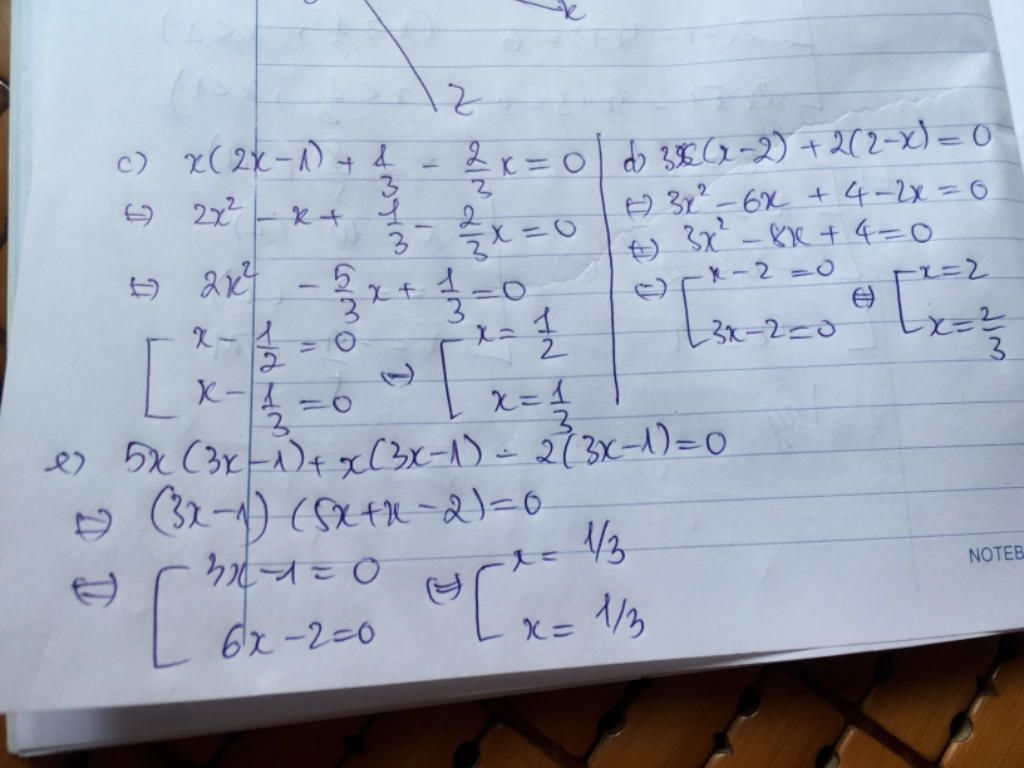 x
z
c) x(2x-1) + 1/3 - 2/3 x = 0
⇔ 2x² - x + 1/3 - 2/3 x = 0
⇔ 2x² - 5/3 x + 1/3 = 0
[ x - 1/2 = 0 ⇔ [ x = 1/2
x - 1/3 = 0 x = 1/3
d) 3x(x-2) + 2(2-x) = 0
⇔ 3x² - 6x + 4 - 2x = 0
⇔ 3x² - 8x + 4 = 0
⇔ [ x - 2 = 0 ⇔ [ x = 2
3x - 2 = 0 x = 2/3
e) 5x(3x-1) + x(3x-1) - 2(3x-1) = 0
⇔ (3x-1) (5x+x-2) = 0
⇔ [ 3x-1 = 0 ⇔ [ x = 1/3
6x-2=0 x = 1/3
NOTEB